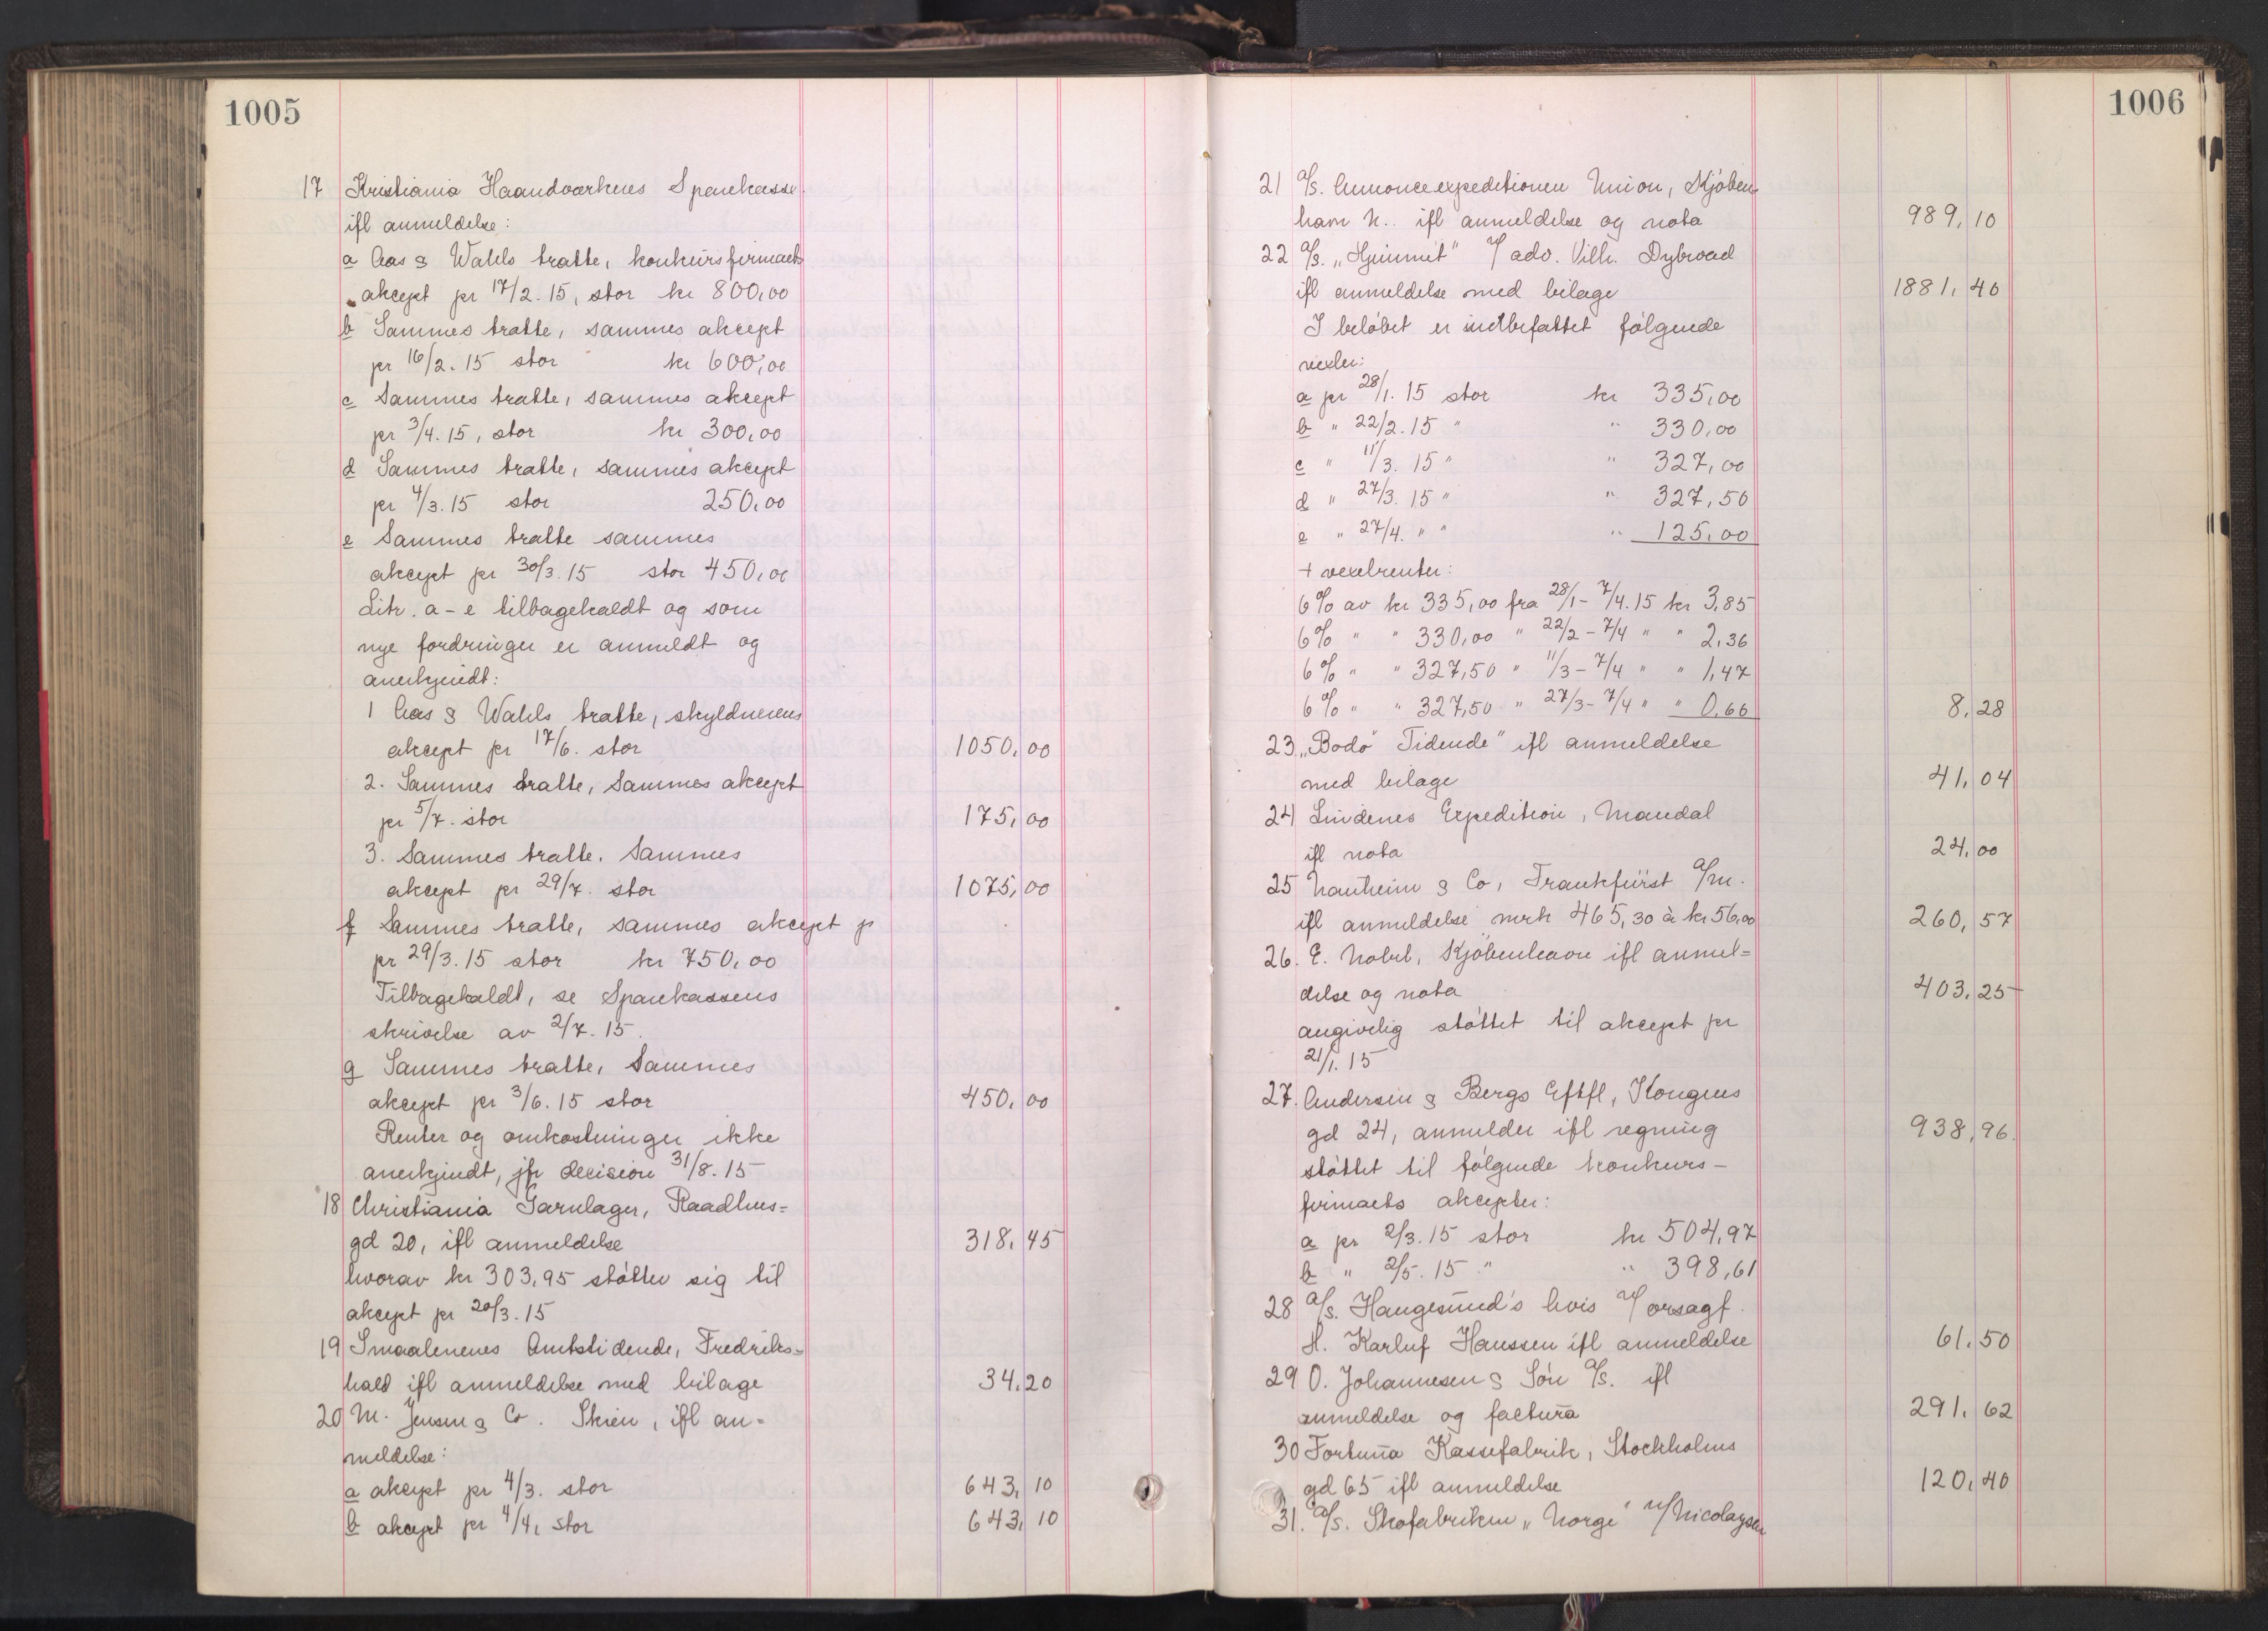 1005
17 Kristiania Haandverkeres Sparekasse
ifl anmeldelse:
a Aas & Wahls tratte, konkursfirmaets
akcept pr 17/2. 15, stor kr 800,00
b Sammes tratte, sammes akcept
pr 16/2. 15 stor kr 600,00
c Sammes tratte, sammes akcept
pr 3/4. 15, stor kr 300,00
d Sammes tratte, sammes akcept
pr 4/3. 15 stor 250,00
e Sammes tratte sammes
akcept pr 30/3. 15 stor 450,00
Litr. a - e tilbagekaldt og som
nye fordringer er anmeldt og
anerkjendt:
1 Aas & Wahls tratte, skyldnerens
akcept pr 17/6. stor 1050,00
2. Sammes tratte, Sammes akcept
pr 5/7. stor 175,00
3. Sammes tratte. Sammes
akcept pr 29/7. stor 1075,00
f Sammes tratte, sammes akcept p
pr 29/3. 15 stor kr 750,00
Tilbagekaldt, se Sparekassens
skrivelse av 2/7. 15.
g Sammes tratte, Sammes
akcept pr 3/6. 15 stor 450,00
Renter og omkostninger ikke
anerkjendt, jfr decision 31/8. 15
18 Christiania Garnlager, Raadhus=
gd 20, ifl anmeldelse 318,45
hvorav kr 303,95 støtter sig til
akcept pr 20/3. 15
19 Smaalenenes Amtstidende, Fredriks=
hald ifl anmeldelse med bilage 34,20
20 M. Jensen & Co. Skien, ifl an=
meldelse:
a akcept pr 4/3. stor 643,10
b akcept pr 4/4, stor 643,10
1006
21 A/S. Annonceexpeditionen Union, Kjøben-
havn K.. ifl anmeldelse og nota 989,10
22 A/S. „Hjemmet" v/ adv. Vilh. Dybwad
ifl anmeldelse med bilage 1881,40
I beløbet er indbefattet følgende
vexler:
a pr 28/1. 15 stor kr 335,00
b " 22/2. 15 " " 330,00
c " 11/3. 15 " " 327,00
d " 27/3. 15 " " 327,50
e " 27/4. " " " 125,00
+ vexelrenter:
6% av kr 335,00 fra 28/1 - 7/4. 15 kr 3,85
6% " " 330,00 " 22/2 - 7/4 " " 2,36
6% " " 327,50 " 11/3 - 7/4 " " 1,47
6% " " 327,50 " 27/3 - 7/4 " " 0,60 8,28
23 „Bodø Tidende" ifl anmeldelse
med bilage 41,04
24 Lindenes Expedition, Mandal
ifl nota 24,00
25 Nauheim & Co, Frankfurst a/m.
ifl anmeldelse mrk 465,30 à kr 56,00 260,57
26. E. Nobel, Kjøbenhavn ifl anmel=
delse og nota 403,25
angivelig støttet til akcept pr
21/1. 15
27. Andersen & Bergs Eftfl, Kongens
gd 24, anmelder ifl regning 938,96.
støttet til følgende konkurs-
firmaets akcepter:
a pr 2/3. 15 stor kr 504,97
b " 2/5. 15 " " 398,61
28 A/S. Haugesund's Avis v/ orsagf.
H. Karluf Hanssen ifl anmeldelse 61,50
29 O. Johannesen & Søn A/S. ifl
anmeldelse og factura 291,62
30 Fortuna Kassefabrik, Stockholms
gd 65 ifl anmeldelse 120,40
31. A/S. Skofabriken „Norge" v/ Nicolaysen